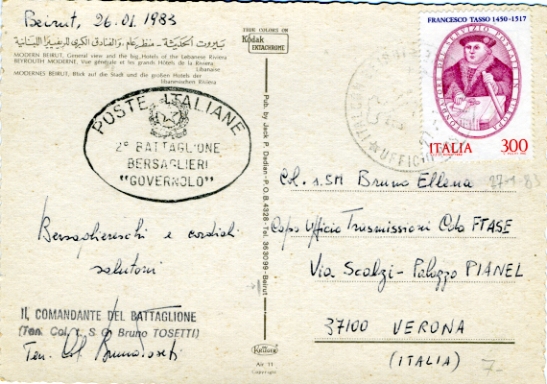 Beirut, 26.01.1983
بيروت الحديثة - منظر عام والفنادق الكبرى للريفييرا اللبنانية
MODERN BEIRUT, General view and the big Hotels of the Lebanese Riviera
BEYROUTH MODERNE, Vue générale et les grands Hôtels de la Riviera
Libanaise
MODERNES BEIRUT, Blick auf die Stadt und die großen Hotels der
libanesischen Riviera
THESE COLORS ON
Kodak
EKTACHROME
POSTE ITALIANE
2º BATTAGLIONE
BERSAGLIERI
"GOVERNOLO"
Bersagliereschi e cordiali
saluti
IL COMANDANTE DEL BATTAGLIONE
(Ten. Col. t. S.G. Bruno TOSETTI)
Ten. Col. Bruno Tosetti
Pub. by Jack P. Dedian - P.O.B. 4328 - Tel. 363096 - Beirut
Air 11
FRANCESCO TASSO 1450-1517
ITALIA 300
UFFICIO
Col. s.SM Bruno Ellena
27-1-83
Capo Ufficio Trasmissioni C.do FTASE
Via Scalzi - Palazzo PIANEL
37100 VERONA
(ITALIA)